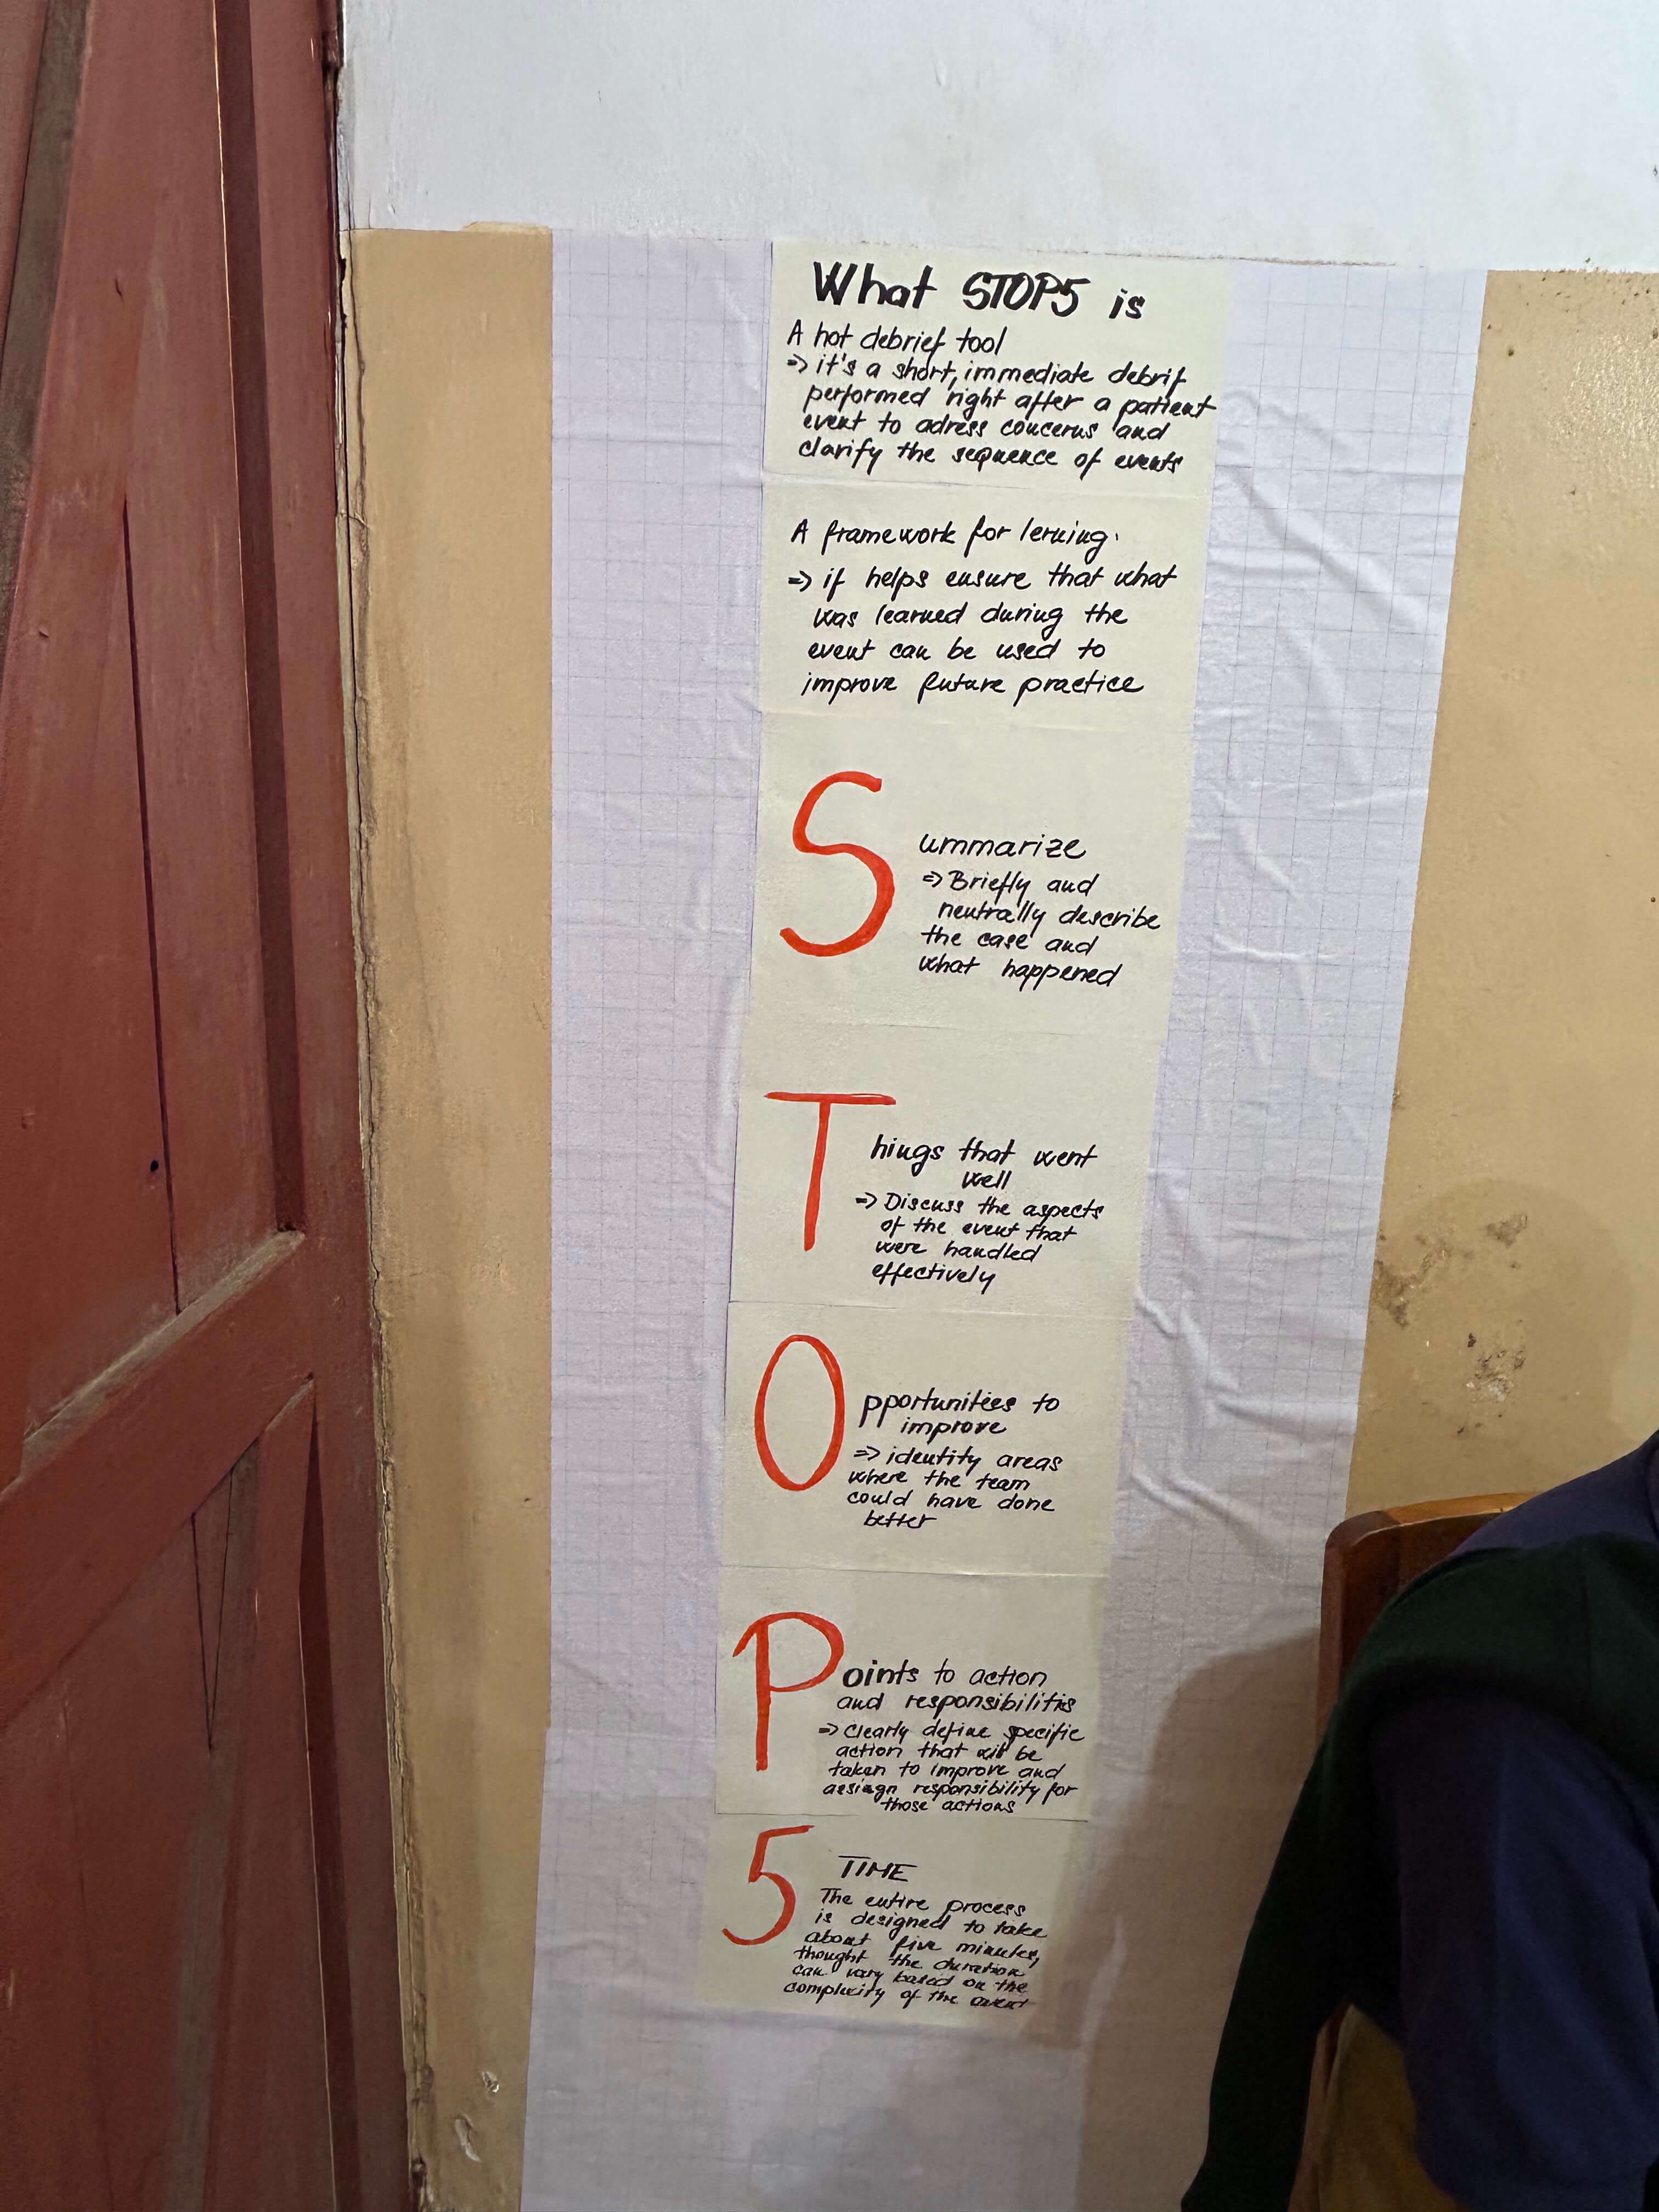 What STOP5 is
A hot debrief tool
=> it's a short, immediate debrif
performed right after a patient
event to adress concerns and
clarify the sequence of events
A framework for lerning.
=> if helps ensure that what
was learned during the
event can be used to
improve future practice
Summarize
=> Briefly and
neutrally describe
the case and
what happened
Things that went
well
=> Discuss the aspects
of the event that
were handled
effectively
Opportunities to
improve
=> identity areas
where the team
could have done
better
Points to action
and responsibilitis
=> Clearly define specific
action that will be
taken to improve and
assiagn responsibility for
those actions
5 TIME
The entire process
is designed to take
about five minutes,
thought the duration
can vary based on the
complexity of the event